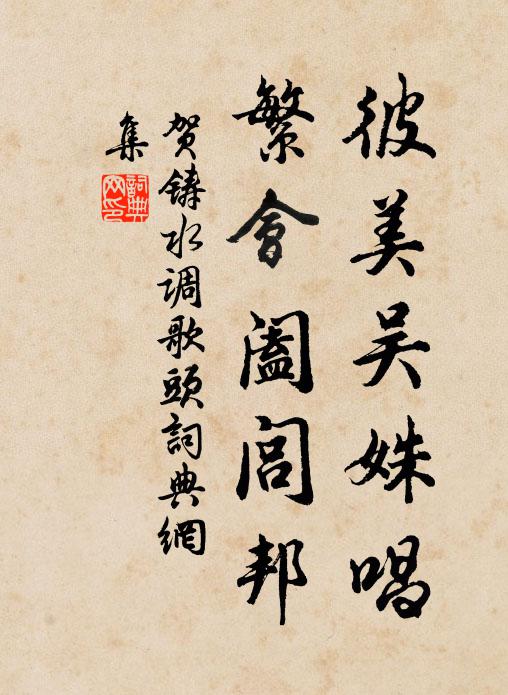 彼美吴姝唱
繁會阖闾邦
贺鑄水调歌頭詞典網
集
詞典
网印